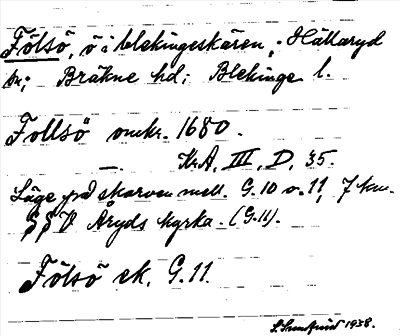 Fölsö, ö i blekingeskären; Hällaryd
sn; Bräkne hd; Blekinge l.
Follsö omkr. 1680.
— KrA, III, D, 35.
Läge på skarven mell. G.10 o. 11, 7 km.
SSV Aryds kyrka. (G.11).
Fölsö ek. G.11.
1938.